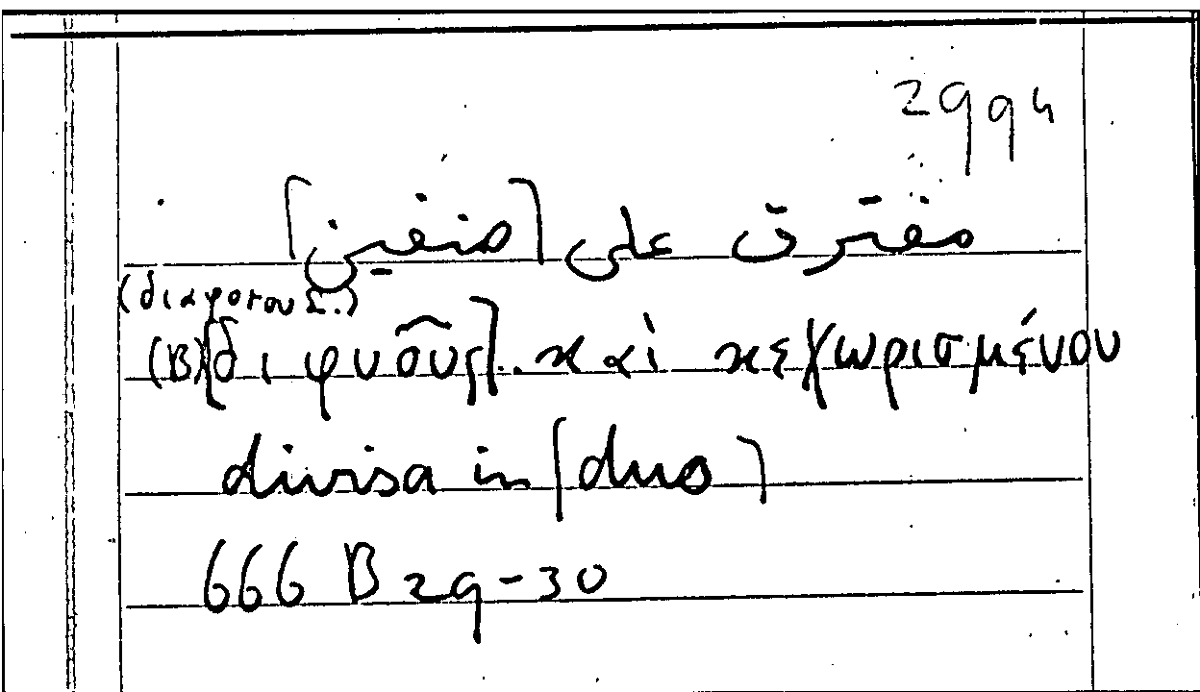 2994
مفترق على [صنفين]
(διαφοτου Σ.)
(B)[διφυοῦς]..καὶ κεχωρισμένου
divisa in [duo]
666 B 29-30